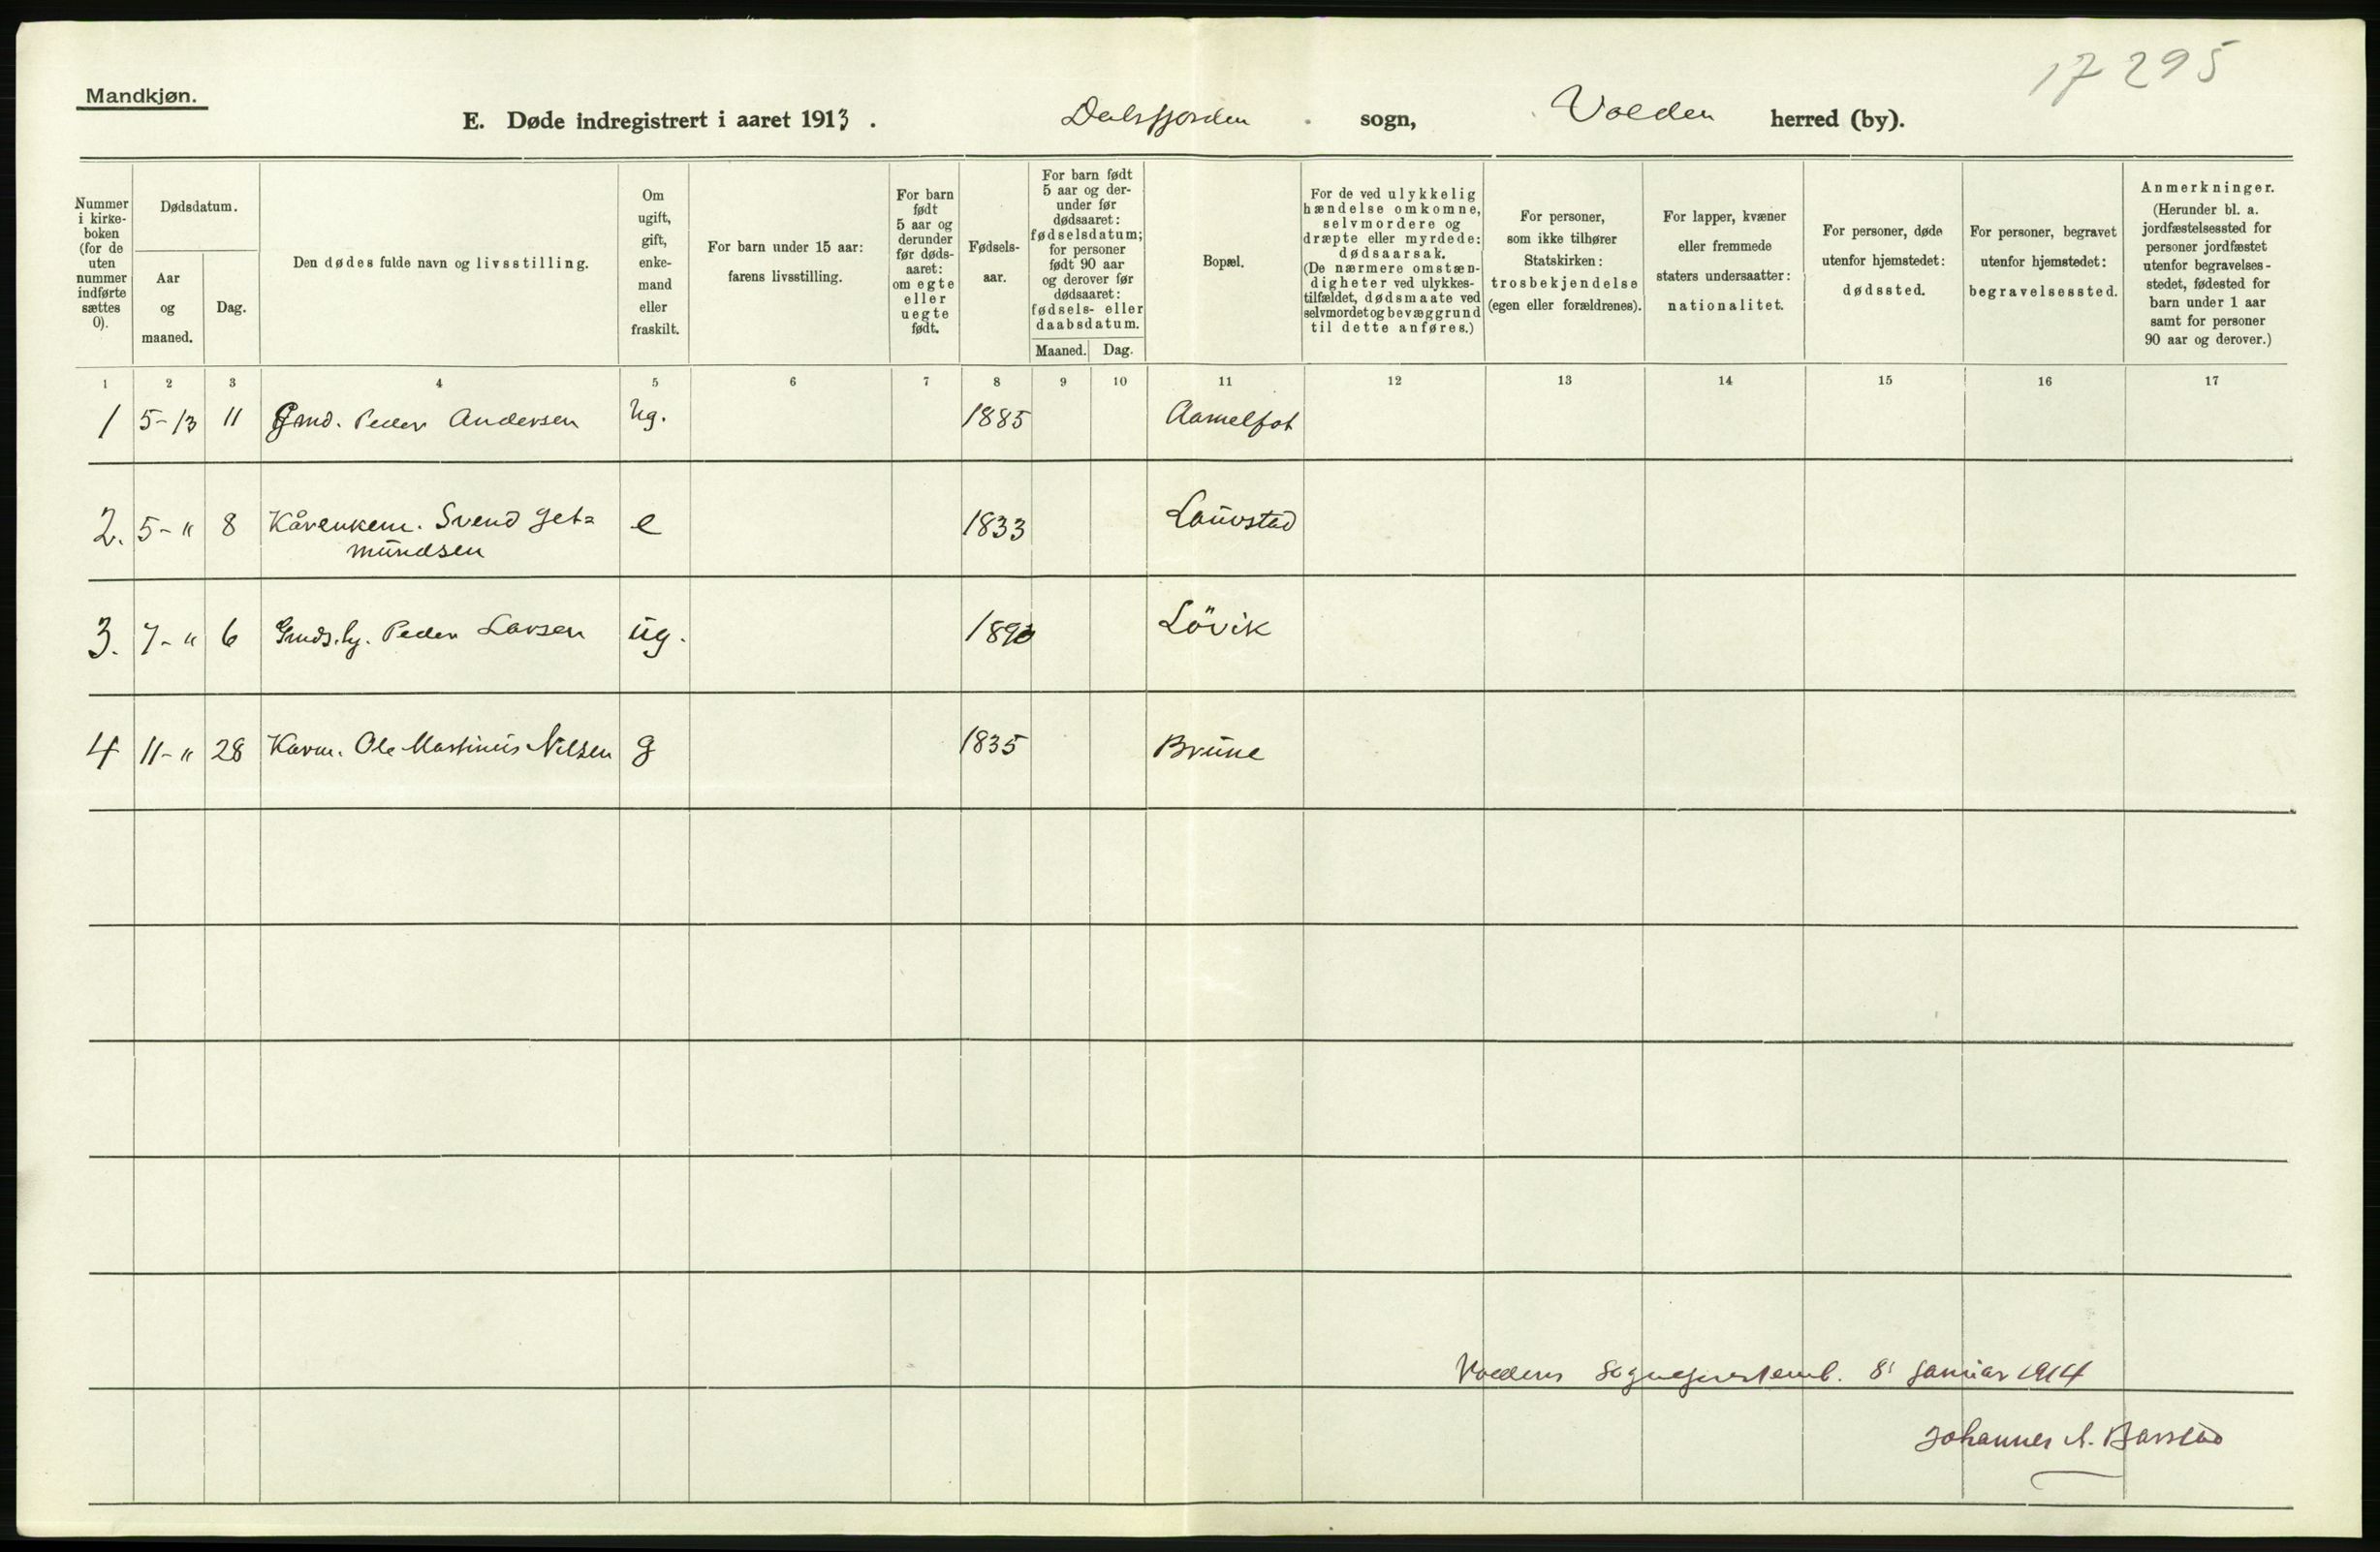 17 295
Mandkjøn.
E. Døde indregistrert i aaret 1913. Dalsfjorden sogn, Volden herred (by).
Nummer i kirke-boken (for de uten nummer indførte sættes 0).
Dødsdatum.
Aar og maaned.
Dag.
Den dødes fulde navn og livsstilling.
Om ugift, gift, enke-mand eller fraskilt.
For barn under 15 aar: farens livsstilling.
For barn født 5 aar og derunder før døds-aaret: om egte eller uegte født.
Fødsels-aar.
For barn født 5 aar og der-under før dødsaaret: fødselsdatum; for personer født 90 aar og derover før dødsaaret: fødsels- eller daabsdatum.
Maaned. Dag.
Bopæl.
For de ved ulykkelig hændelse omkomne, selvmordere og dræpte eller myrdede: dødsaarsak. (De nærmere omstæn-digheter ved ulykkes-tilfældet, dødsmaate ved selvmordet og bevæggrund til dette anføres.)
For personer, som ikke tilhører Statskirken: trosbekjendelse (egen eller forældrenes).
For lapper, kvæner eller fremmede staters undersaatter: nationalitet.
For personer, døde utenfor hjemstedet: dødssted.
For personer, begravet utenfor hjemstedet: begravelsessted.
Anmerkninger. (Herunder bl. a. jordfæstelsessted for personer jordfæstet utenfor begravelses-stedet, fødested for barn under 1 aar samt for personer 90 aar og derover.)
1 2 3 4 5 6 7 8 9 10 11 12 13 14 15 16 17
1 5-13 11 Gmd. Peder Andersen ug. 1885 Aamelfot
2. 5-" 8 Kårenkem. Svend Get=
mundsen e 1833 Lauvstad
3. 7-" 6 Gmds. Peder Larsen ug. 1890 Lövik
4 11-" 28 Karm. Ole Martinus Nilsen g 1835 Brune
Voldens Sogneprestemb. 8' januar 1914
Johannes A. Barstad